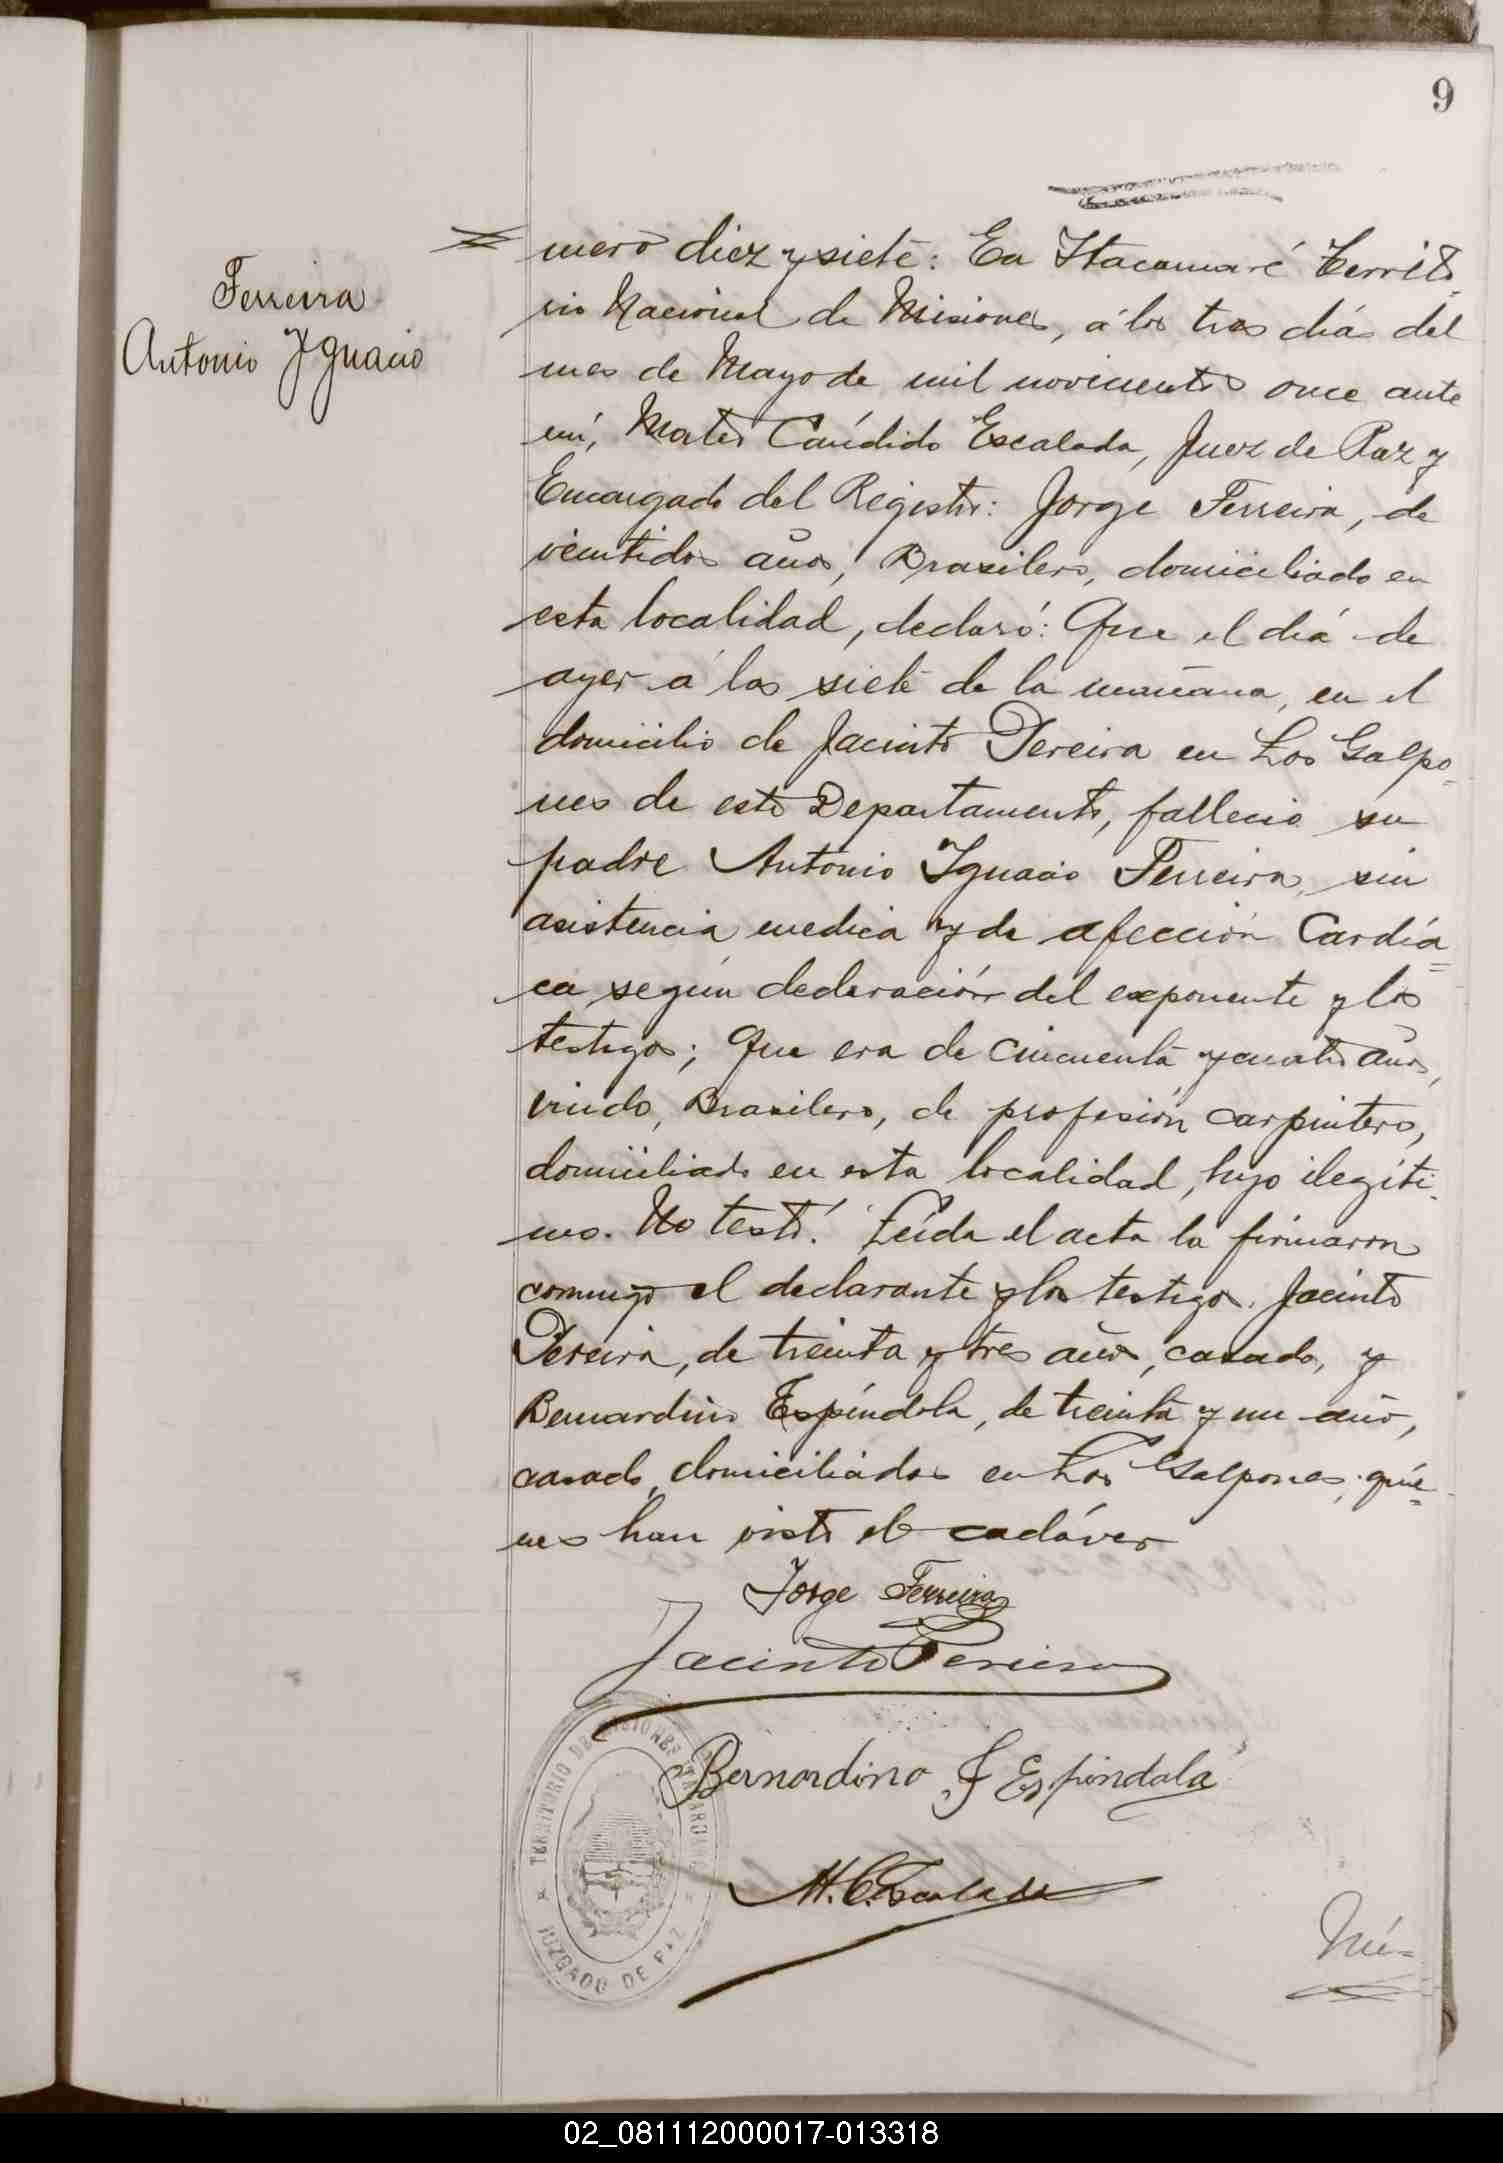 9
Ferreira
Antonio Ygnacio
mero diez y siete: En Itacaruaré Territo-
rio Nacional de Misiones, á los tres días del
mes de Mayo de mil novecientos once ante
mí, Mateo Cándido Escalada, Juez de Paz y
Encargado del Registro: Jorge Ferreira, de
veintidos años, Brasilero, domiciliado en
esta localidad, declaró: Que el día de
ayer á las siete de la mañana, en el
domicilio de Jacinto Pereira en Los Galpo-
nes de este Departamento, fallecio su
padre Antonio Ygnacio Ferreira, sin
asistencia medica y de afección Cardía=
ca según declaración del exponente y los
testigos; Que era de cincuenta y cuatro años,
viudo, Brasilero, de profesión carpintero,
domiciliado en esta localidad, hijo ilegíti-
mo. No testó. Leída el acta la firmaron
conmigo el declarante y los testigos. Jacinto
Pereira, de treinta y tres años, casado, y
Bernardino Espíndola, de treinta y un año,
casado, domiciliados en Los Galpones, quié=
nes han visto el cadáver
Jorge Ferreira
Jacinto Pereira
Bernardino F Espindola
M. C. Escalada
TERRITORIO DE MISIONES ITACARUARE
JUZGADO DE PAZ
Nú=
02_081112000017-013318